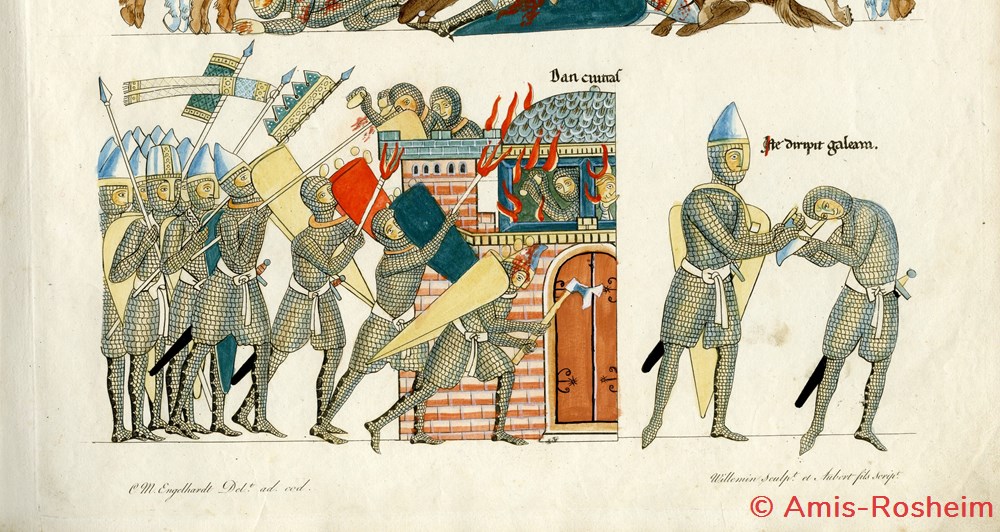 Dan ciuitas
Iste diripit galeam.
C M. Engelhardt Del.t ad cod.
Willemin Sculp.t et Aubert fils scrip.t
© Amis-Rosheim